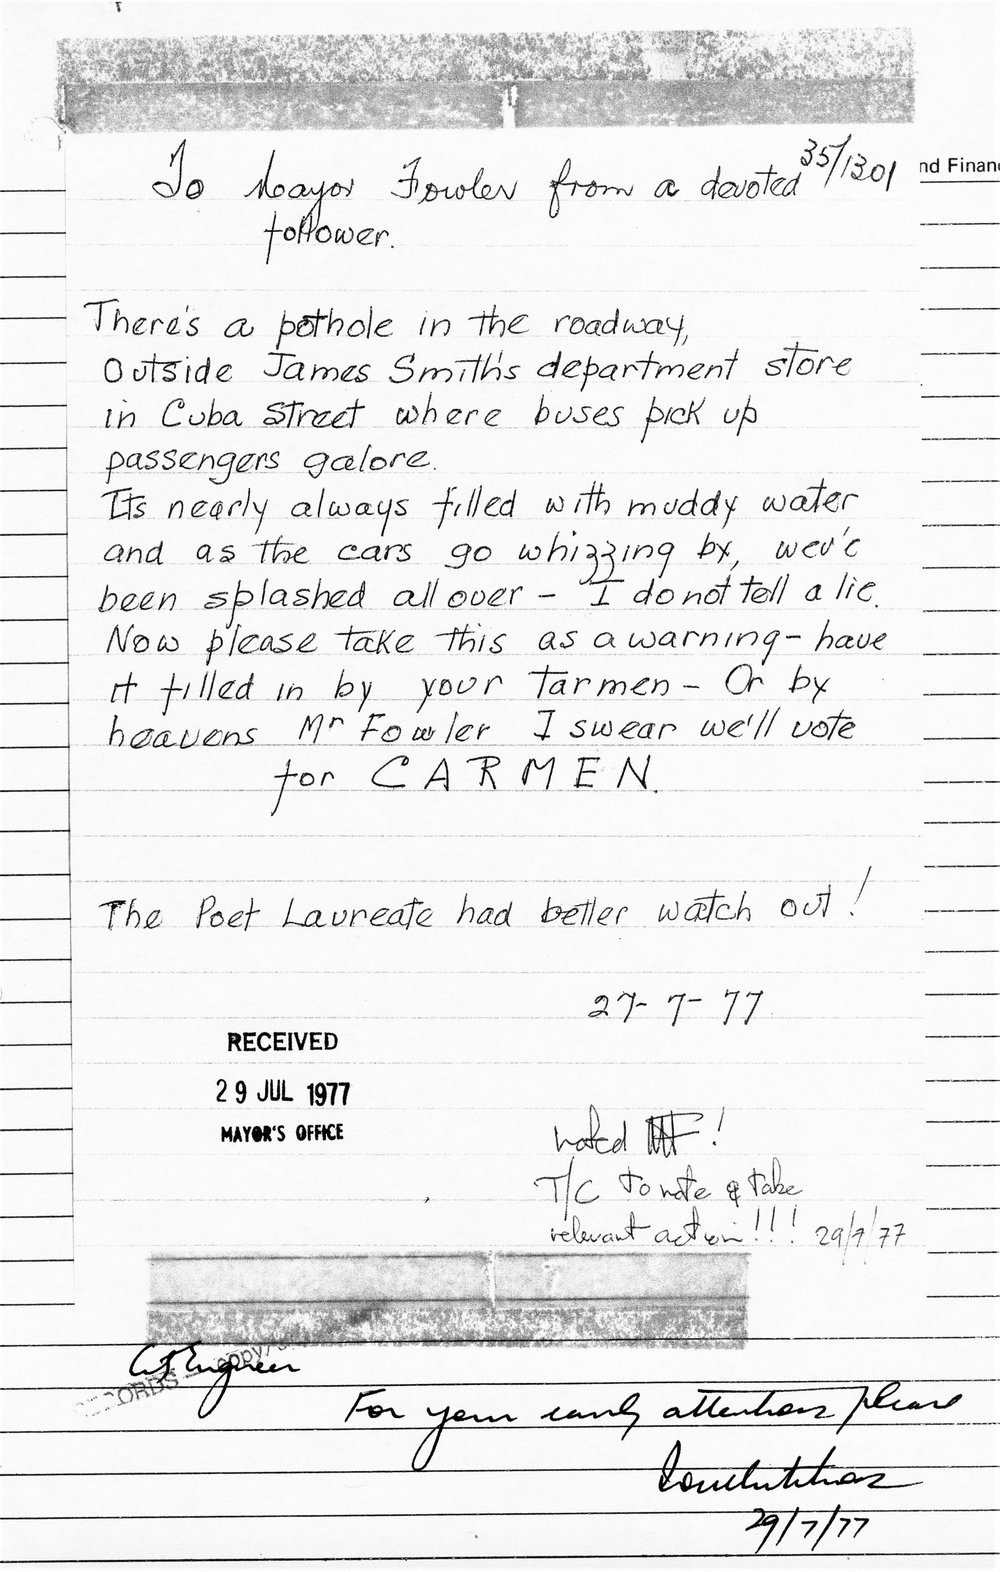 35/1301
nd Finan
To Mayor Fowler from a devoted
follower.
There's a pothole in the roadway,
Outside James Smith's department store
in Cuba Street where buses pick up
passengers galore.
Its nearly always filled with muddy water
and as the cars go whizzing by, wev'e
been splashed all over - I do not tell a lie.
Now please take this as a warning - have
it filled in by your tarmen - Or by
heavens Mr Fowler I swear we'll vote
for CARMEN.
The Poet Laureate had better watch out!
27-7-77
RECEIVED
29 JUL 1977
MAYOR'S OFFICE
noted MF!
T/C to note & take
relevant action!!! 29/7/77
Engineer
For your early attention please
29/7/77